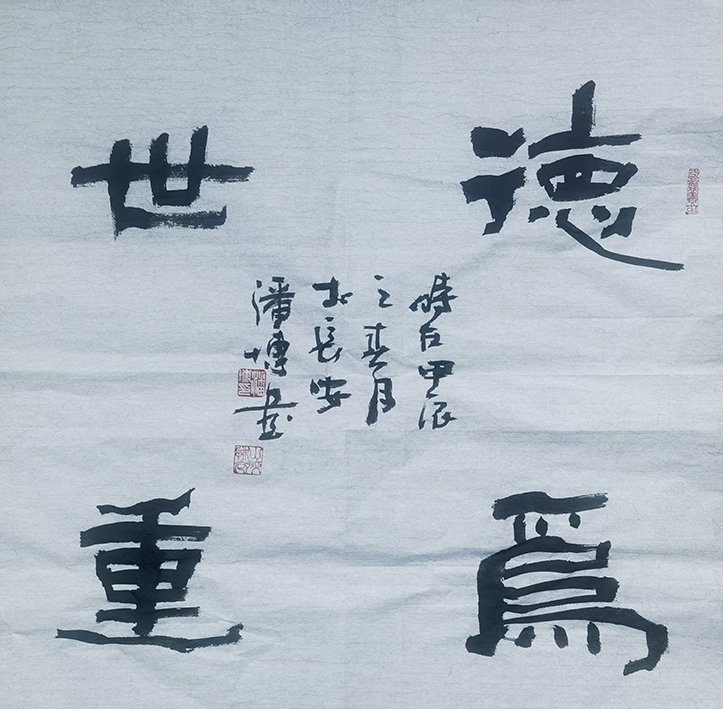 德為
世重
時在甲辰
之春月
於長安
潘博書